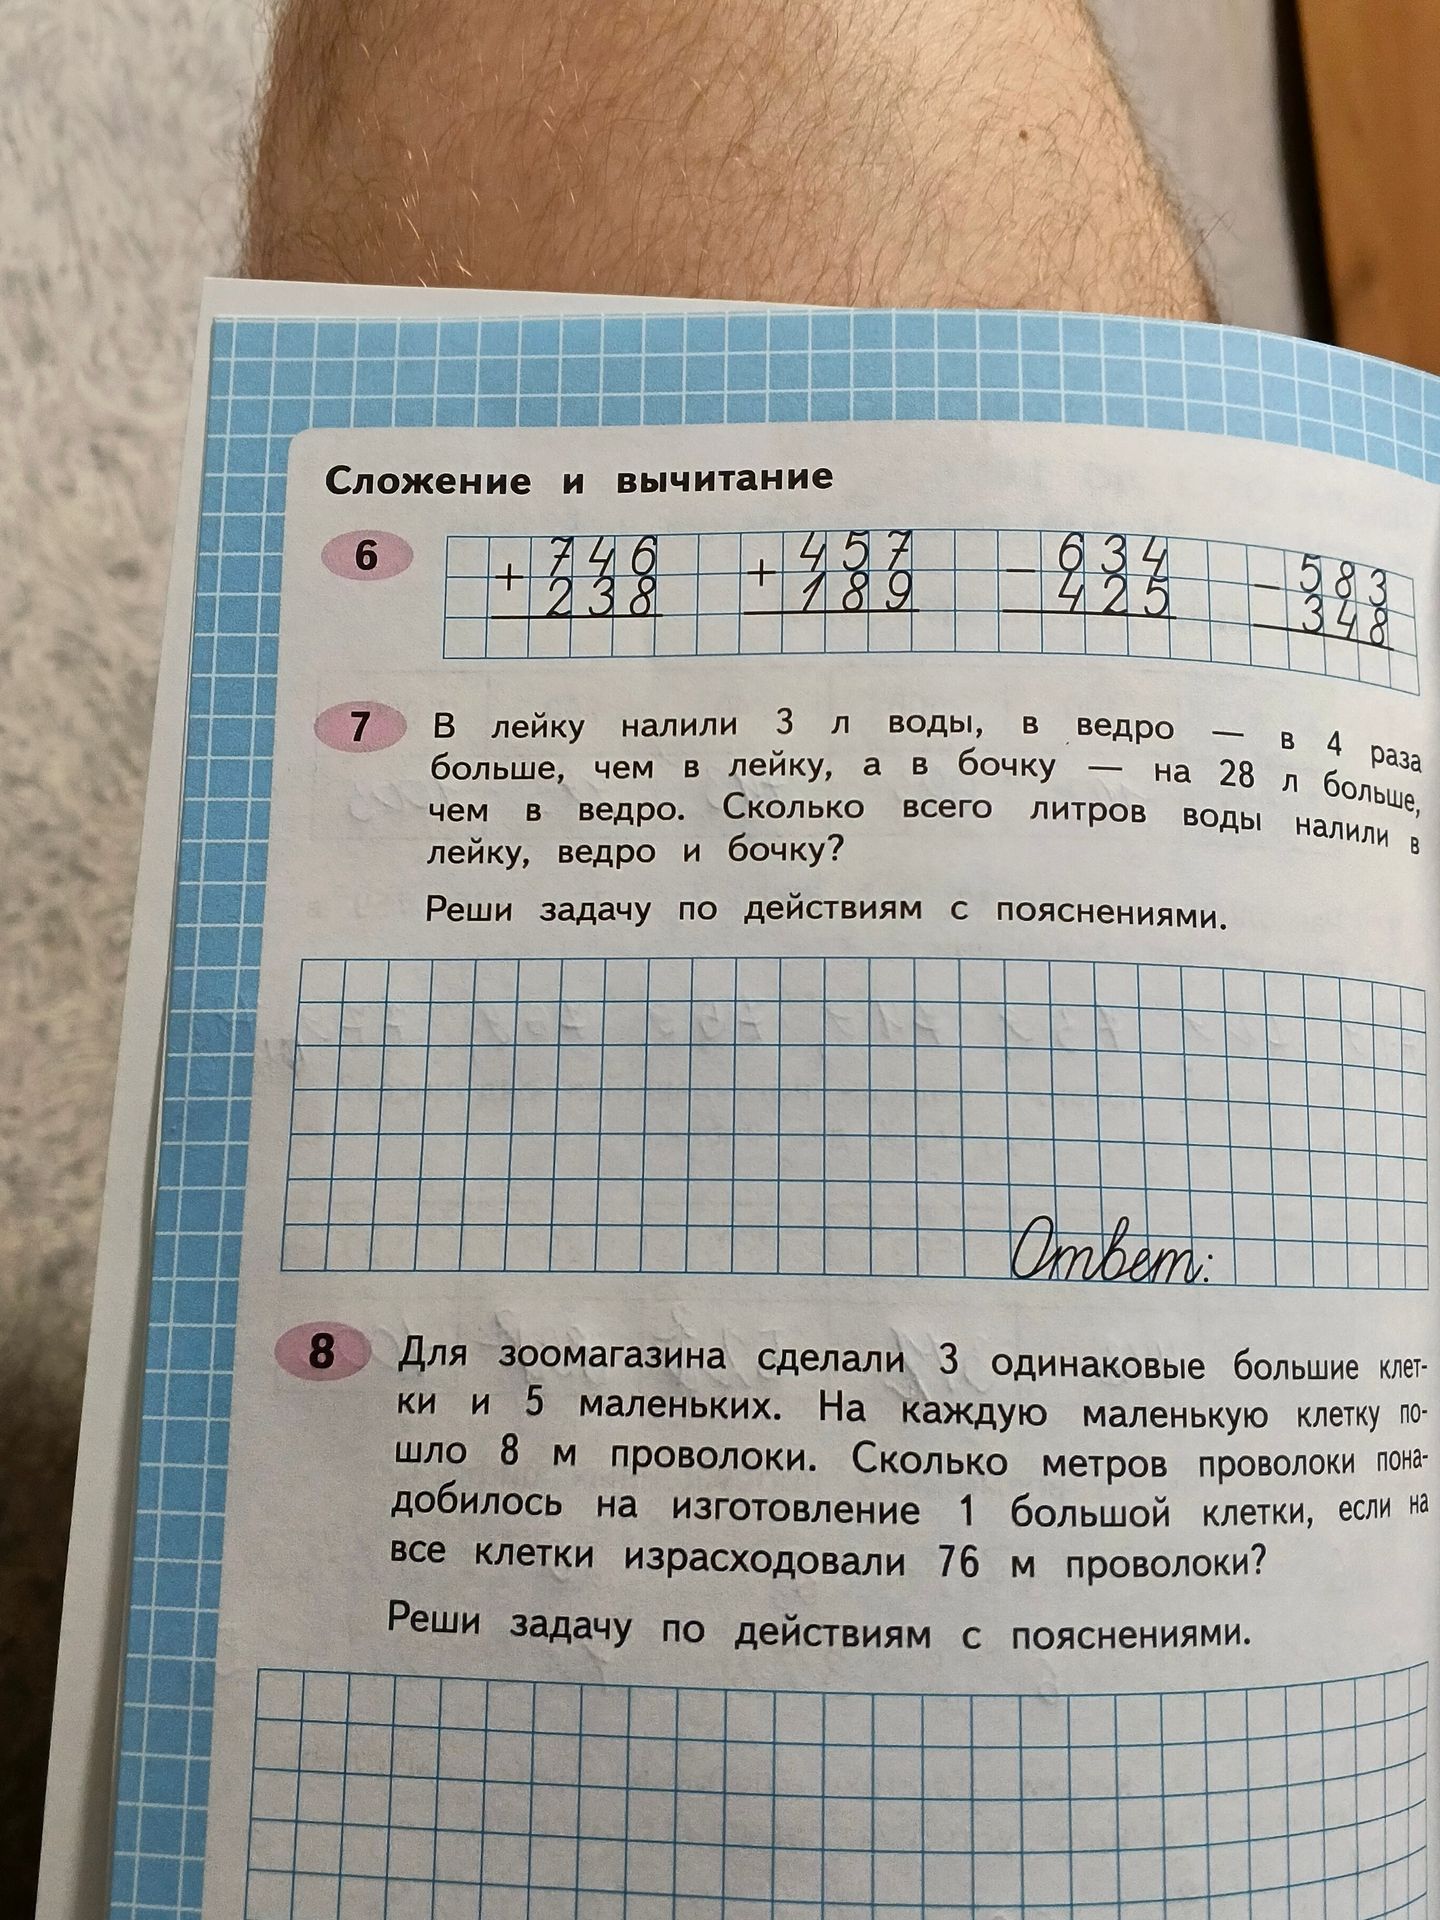 Сложение и вычитание
6
+ 746 + 457 - 634 - 583
238 189 425 348
7 В лейку налили 3 л воды, в ведро — в 4 раза
больше, чем в лейку, а в бочку — на 28 л больше,
чем в ведро. Сколько всего литров воды налили в
лейку, ведро и бочку?
Реши задачу по действиям с пояснениями.
Ответ:
8 Для зоомагазина сделали 3 одинаковые большие клет-
ки и 5 маленьких. На каждую маленькую клетку по-
шло 8 м проволоки. Сколько метров проволоки пона-
добилось на изготовление 1 большой клетки, если на
все клетки израсходовали 76 м проволоки?
Реши задачу по действиям с пояснениями.